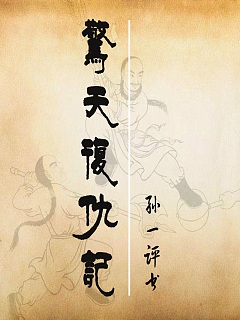 驚天復仇記
孙一评书